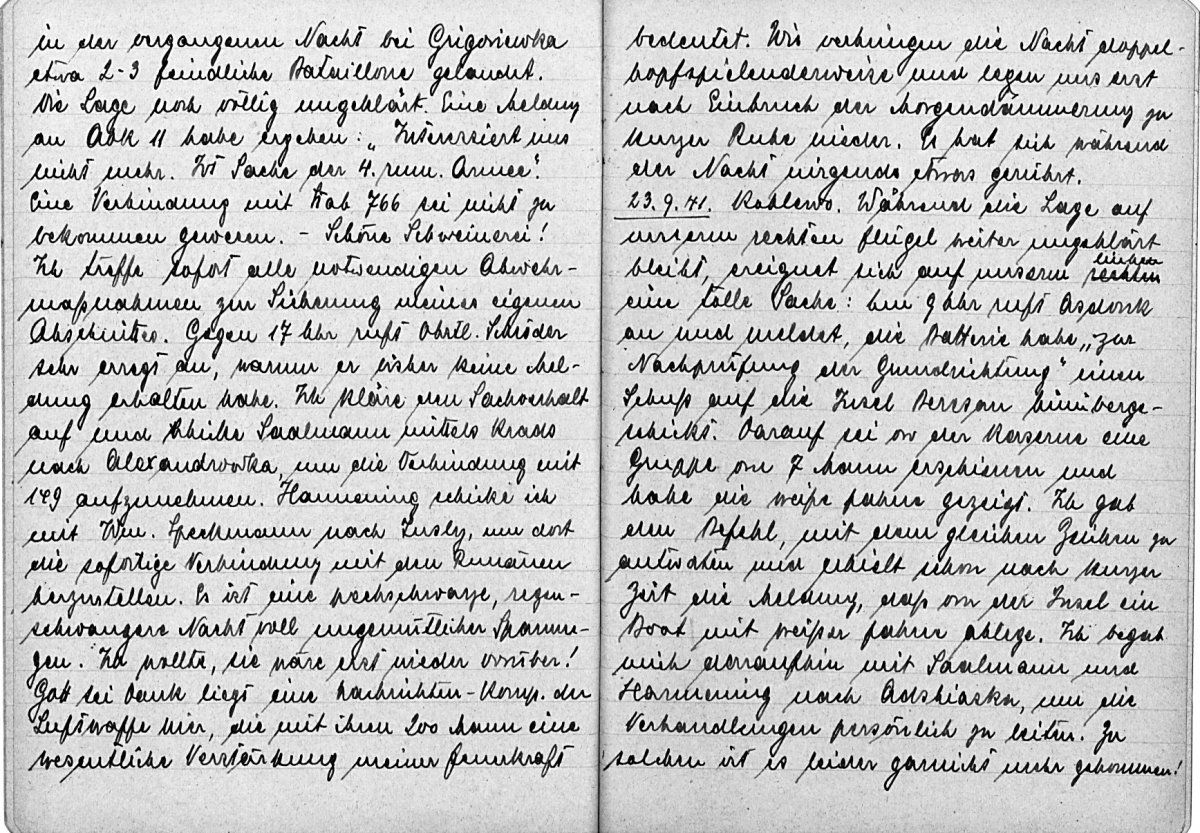 in der vergangenen Nacht bei Grigoriewka
etwa 2-3 feindliche Bataillone gelandet.
Die Lage noch völlig ungeklärt. Eine Meldung
an AOK 11 habe ergeben: „Interessiert uns
nicht mehr. Ist Sache der 4. rum. Armee“.
Eine Verbindung mit Kab 766 sei nicht zu
bekommen gewesen. – Schöne Schweinerei!
Ich treffe sofort alle notwendigen Abwehr-
maßnahmen zur Sicherung meines eigenen
Abschnittes. Gegen 17 Uhr ruft Obrtl. Schröder
sehr erregt an, warum er bisher keine Mel-
dung erhalten habe. Ich kläre den Sachverhalt
auf und schicke Saalmann mittels Krads
nach Alexandrowka, um die Verbindung mit
149 aufzunehmen. Harmening schicke ich
mit Wm. Speckmann nach Zusly, um dort
die sofortige Verbindung mit den Rumänen
herzustellen. Es ist eine pechschwarze, regen-
schwangere Nacht voll ungemütlicher Spannun-
gen. Ich wollte, sie wäre erst wieder vorüber!
Gott sei Dank liegt eine Nachrichten-Komp. der
Luftwaffe hier, die mit ihren 200 Mann eine
wesentliche Verstärkung meiner Feuerkraft
bedeutet. Wir verbringen die Nacht doppel-
kopfspielenderweise und legen uns erst
nach Einbruch der Morgendämmerung zu
kurzer Ruhe nieder. Es hat sich während
der Nacht nirgends etwas gerührt.
23.9.41. Koblewo. Während die Lage auf
unserem rechten Flügel weiter ungeklärt
bleibt, ereignet sich auf unserem rechten linken
eine tolle Sache: Um 9 Uhr ruft Asdonk
an und meldet, die Batterie habe „zur
Nachprüfung der Grundrichtung“ einen
Schuß auf die Insel Beresan hinüberge-
schickt. Darauf sei vor der Kaserne eine
Gruppe von 7 Mann erschienen und
habe die weiße Fahne gezeigt. Ich gab
den Befehl, mit dem gleichen Zeichen zu
antworten und erhielt schon nach kurzer
Zeit die Meldung, daß von der Insel ein
Boot mit weißer Fahne ablege. Ich begab
mich daraufhin mit Saalmann und
Harmening nach Adshiaska, um die
Verhandlungen persönlich zu leiten. Zu
solchen ist es leider garnicht mehr gekommen!